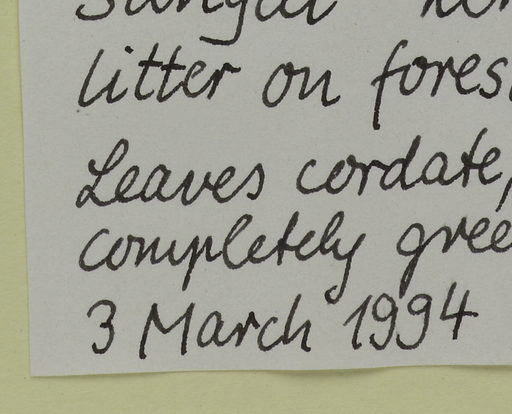 litter on fores
Leaves cordate,
completely gree
3 March 1994